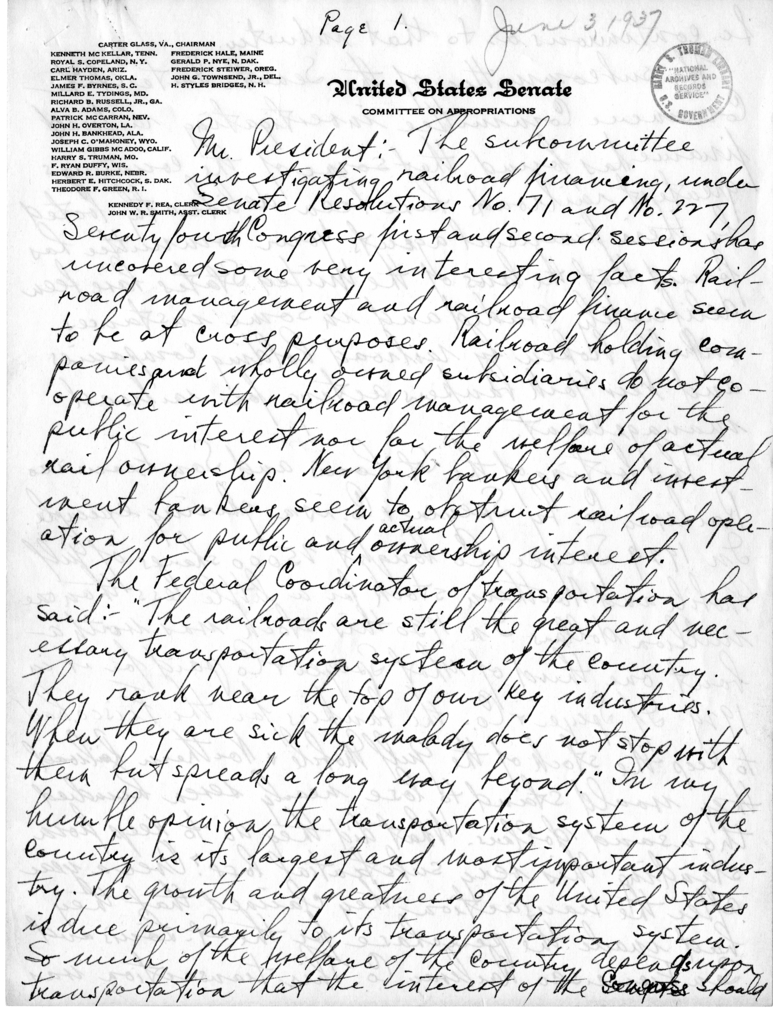 Page 1.
June 3 1937
CARTER GLASS, VA., CHAIRMAN
KENNETH MC KELLAR, TENN.
ROYAL S. COPELAND, N. Y.
CARL HAYDEN, ARIZ.
ELMER THOMAS, OKLA.
JAMES F. BYRNES, S. C.
MILLARD E. TYDINGS, MD.
RICHARD B. RUSSELL, JR., GA.
ALVA B. ADAMS, COLO.
PATRICK MC CARRAN, NEV.
JOHN H. OVERTON, LA.
JOHN H. BANKHEAD, ALA.
JOSEPH C. O'MAHONEY, WYO.
WILLIAM GIBBS MC ADOO, CALIF.
HARRY S. TRUMAN, MO.
F. RYAN DUFFY, WIS.
EDWARD R. BURKE, NEBR.
HERBERT E. HITCHCOCK, S. DAK.
THEODORE F. GREEN, R. I.
FREDERICK HALE, MAINE
GERALD P. NYE, N. DAK.
FREDERICK STEIWER, OREG.
JOHN G. TOWNSEND, JR., DEL.
H. STYLES BRIDGES, N. H.
KENNEDY F. REA, CLERK
JOHN W. R. SMITH, ASST. CLERK
United States Senate
COMMITTEE ON APPROPRIATIONS
HARRY S. TRUMAN LIBRARY
"NATIONAL
ARCHIVES AND
RECORDS
SERVICE"
U.S. GOVERNMENT
Mr. President:- The subcommittee
investigating railroad financing, under
Senate Resolutions No. 71 and No. 227,
Seventy fourth Congress first and second sessions has
uncovered some very interesting facts. Rail-
road management and railroad finance seem
to be at cross purposes. Railroad holding com-
panies and wholly owned subsidiaries do not co-
operate with railroad management for the
public interest nor for the welfare of actual
rail ownership. New York bankers and invest-
ment bankers seem to obstruct railroad oper-
ation for public and actual ownership interest.
The Federal Coordinator of transportation has
said:- "The railroads are still the great and nec-
essary transportation system of the country.
They rank near the top of our key industries.
When they are sick the malady does not stop with
them but spreads a long way beyond." In my
humble opinion the transportation system of the
country is its largest and most important indus-
try. The growth and greatness of the United States
is due primarily to its transportation system.
So much of the welfare of the country depends upon
transportation that the interest of the Congress should